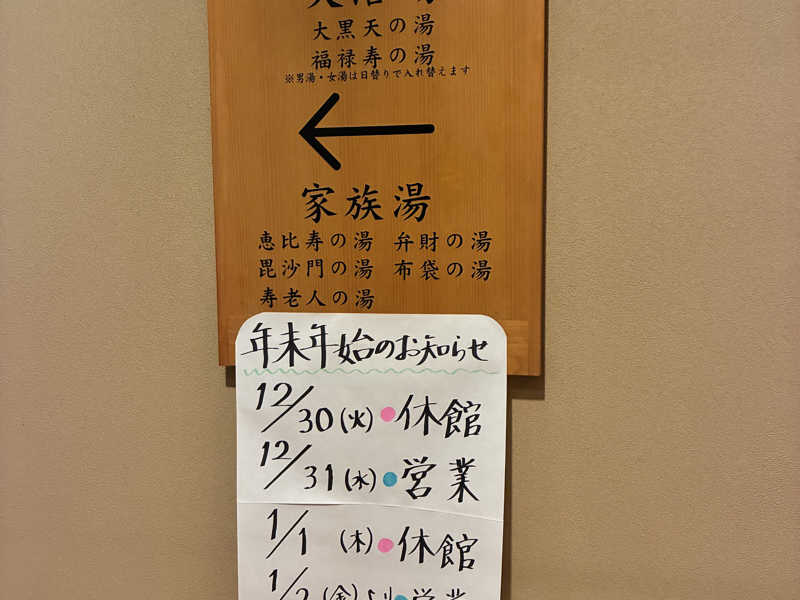 大黒天の湯
福禄寿の湯
※男湯・女湯は日替りで入れ替えます
家族湯
恵比寿の湯 弁財の湯
毘沙門の湯 布袋の湯
寿老人の湯
年末年始のお知らせ
12/30(火)●休館
12/31(水)●営業
1/1 (木)●休館
1/2(金)より●営業